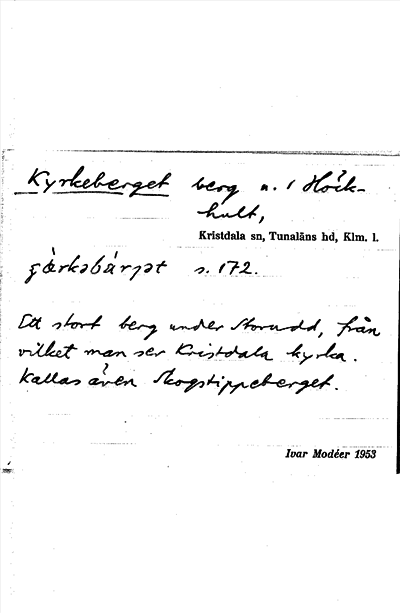 Kyrkeberget berg n. 1 Höck-
hult,
Kristdala sn, Tunaläns hd, Klm. l.
s. 172.
Ett stort berg under Storudd, från
vilket man ser Kristdala kyrka.
Kallas även Skogstippeberget.
Ivar Modéer 1953